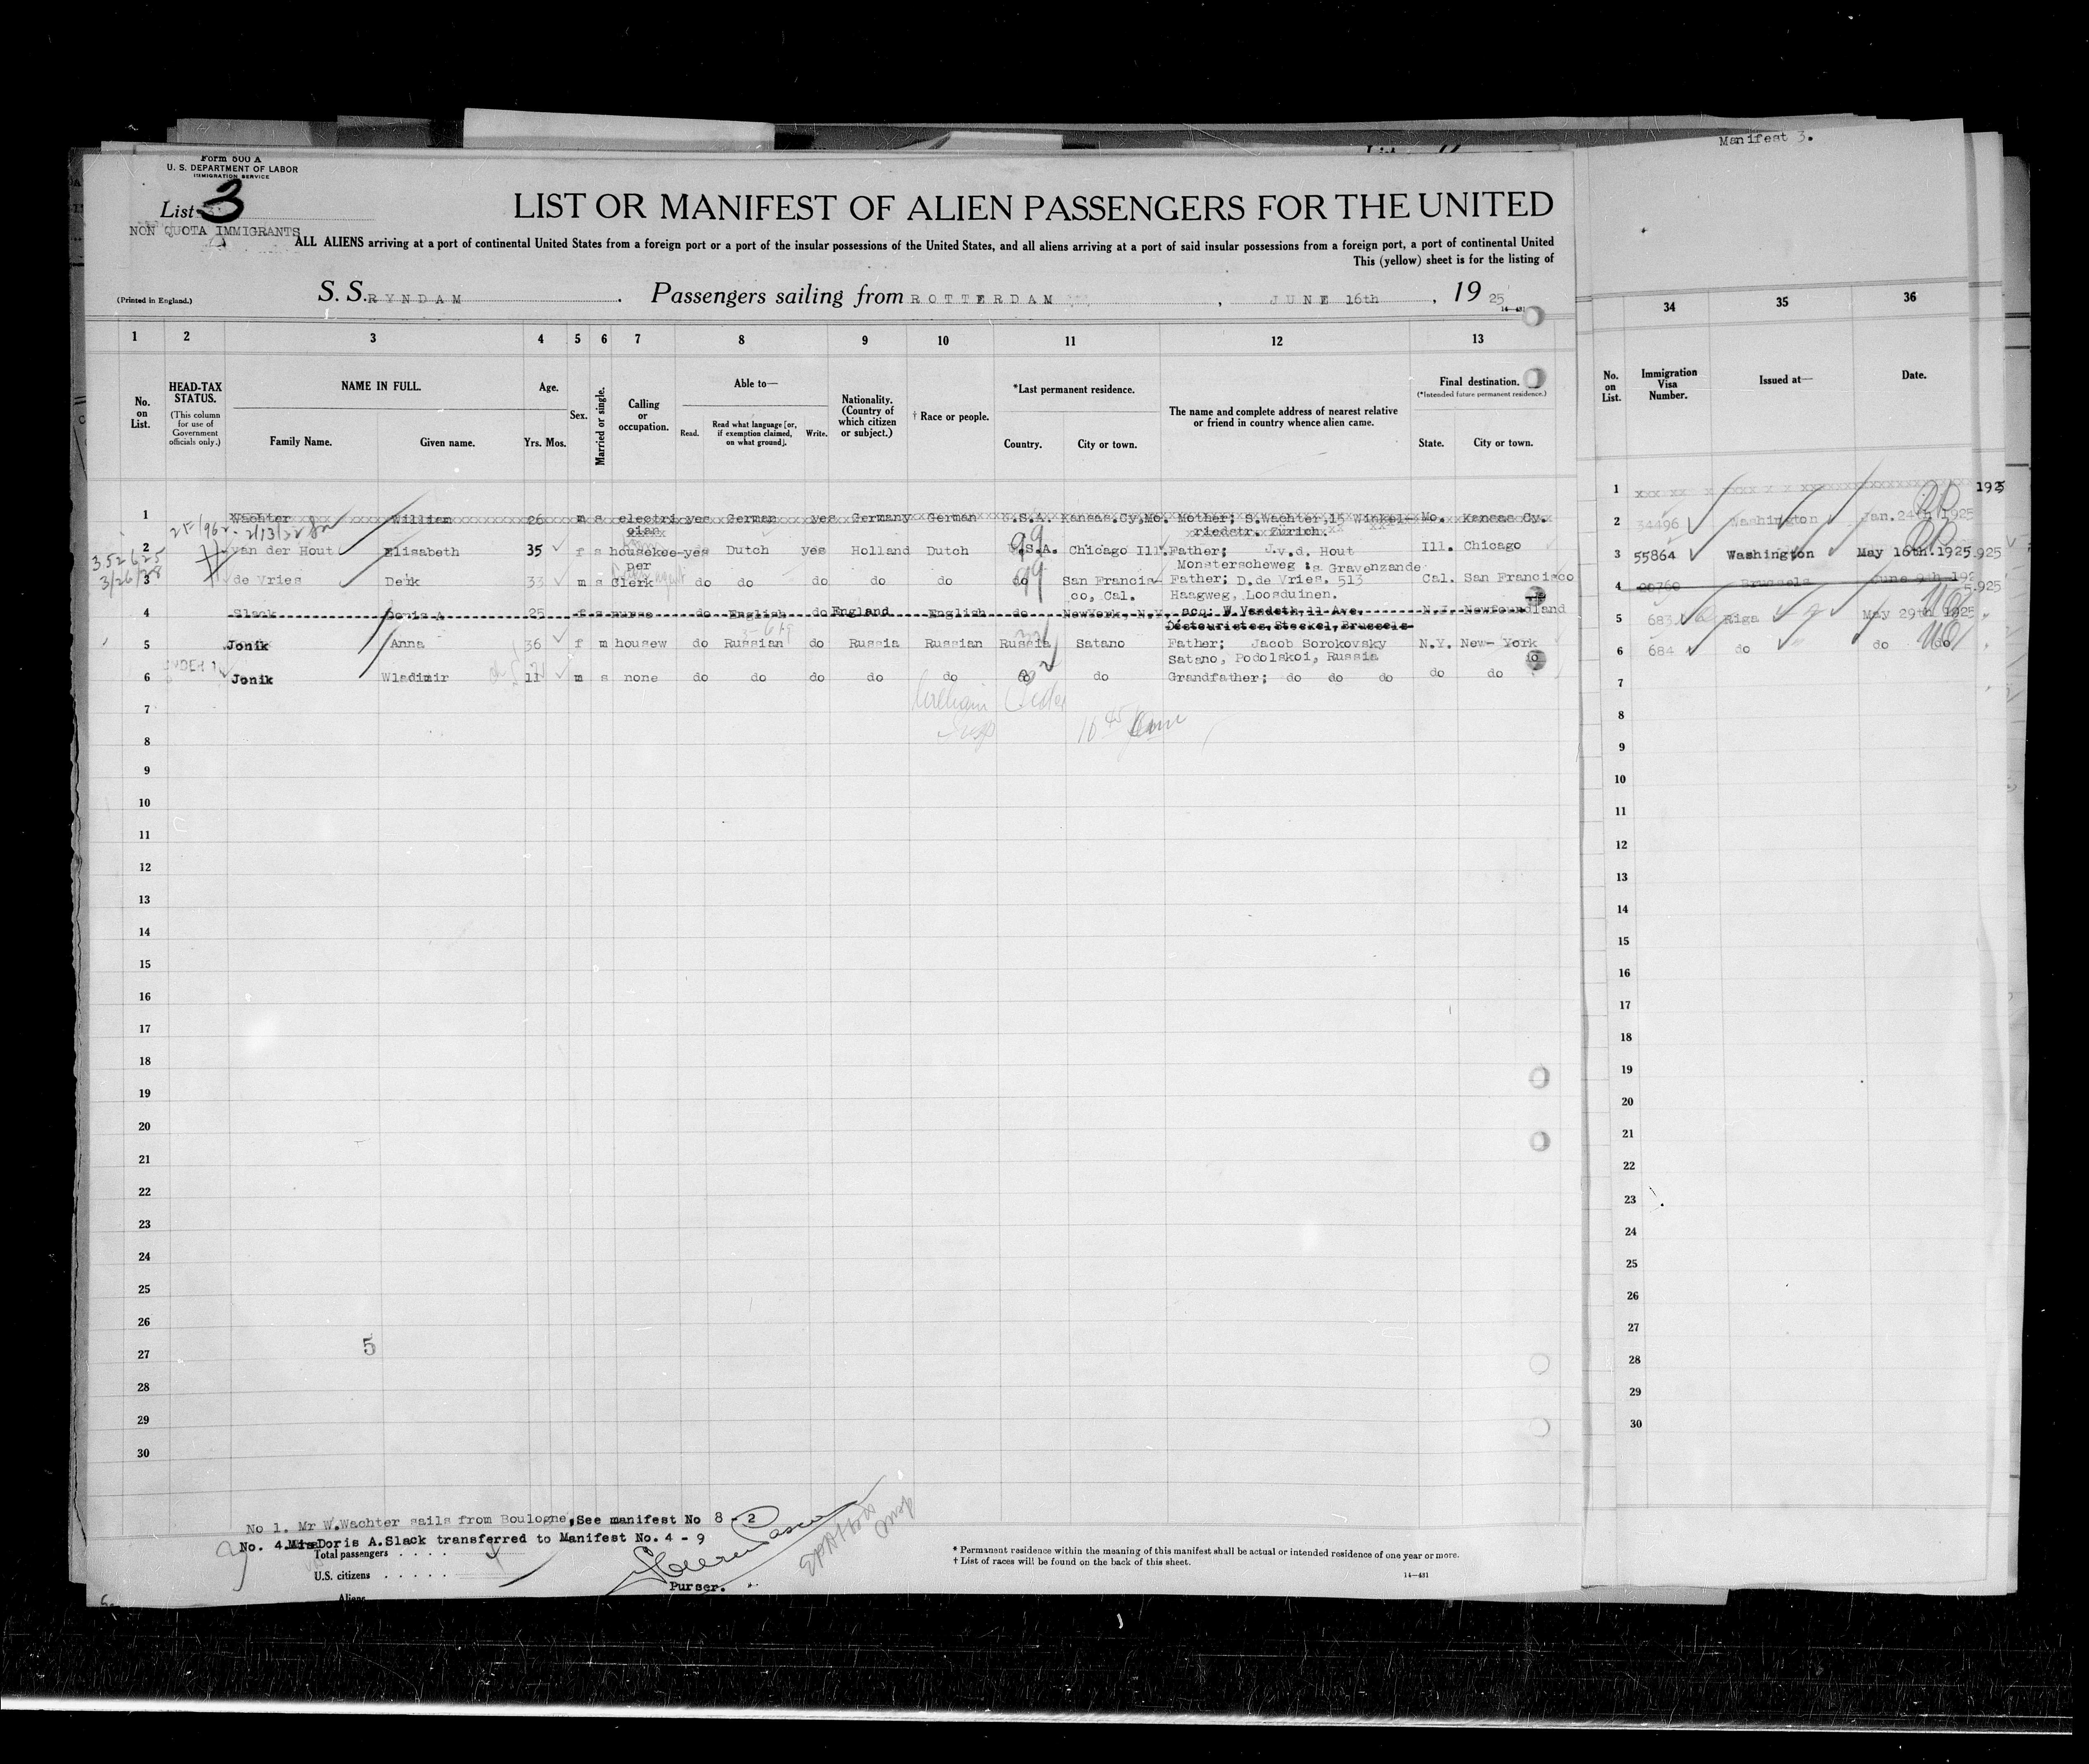 Manifest 3.
Form 500 A
U. S. DEPARTMENT OF LABOR
IMMIGRATION SERVICE
List 3
NON QUOTA IMMIGRANTS
LIST OR MANIFEST OF ALIEN PASSENGERS FOR THE UNITED
ALL ALIENS arriving at a port of continental United States from a foreign port or a port of the insular possessions of the United States, and all aliens arriving at a port of said insular possessions from a foreign port, a port of continental United
This (yellow) sheet is for the listing of
(Printed in England.)
S. S. RYNDAM. Passengers sailing from ROTTERDAM, JUNE 16th, 1925
14—431
1 2 3 4 5 6 7 8 9 10 11 12 13
34 35 36
No. on List.
HEAD-TAX STATUS.
(This column for use of Government officials only.)
NAME IN FULL.
Family Name. Given name.
Age.
Yrs. Mos.
Sex.
Married or single.
Calling or occupation.
Able to—
Read. Read what language [or, if exemption claimed, on what ground]. Write.
Nationality. (Country of which citizen or subject.)
† Race or people.
*Last permanent residence.
Country. City or town.
The name and complete address of nearest relative or friend in country whence alien came.
Final destination.
(*Intended future permanent residence.)
State. City or town.
No. on List.
Immigration Visa Number.
Issued at—
Date.
1 Wachter William 26 m s electri yes German yes Germany German U.S.A. Kansas.Cy,Mo. Mother; S.Wachter,15 Winkel- Mo. Kansas Cy.
cian riedstr. Zürich.
2/13/32
2 van der Hout Elisabeth 35 f s housekee- yes Dutch yes Holland Dutch U.S.A. Chicago Ill. Father; J.v.d. Hout Ill. Chicago
per Monsterscheweg :s Gravenzande
352625
3/26/28
3 de Vries Derk 33 m s Clerk do do do do do do San Francis- Father; D.de Vries. 513 Cal. San Francisco
co, Cal. Haagweg, Loosduinen.
4 Slack Doris A 25 f s nurse do English do England English do NewYork, N.Y. acq: W.Vandeth,11 Ave. N.J. Newfoundland
Déstouristes, Stockel, Brussels
5 Jonik Anna 36 f m housew do Russian do Russia Russian Russia Satano Father; Jacob Sorokovsky N.Y. New-York
Satano, Podolskoi, Russia
6 Jonik Wladimir 11 m s none do do do do do do do Grandfather; do do do do do
William
7
8
9
10
11
12
13
14
15
16
17
18
19
20
21
22
23
24
25
26
27
28
29
30
5
1 1925
2 34496 Washington Jan.24th 1925
3 55864 Washington May 16th.1925
4 20760 Brussels June 9th 192
5 683 Riga May 29th 1925
6 684 do do do
7
8
9
10
11
12
13
14
15
16
17
18
19
20
21
22
23
24
25
26
27
28
29
30
No 1. Mr W.Wachter sails from Boulogne, See manifest No 8 - 2
No. 4. Miss Doris A.Slack transferred to Manifest No. 4 - 9
Total passengers . . . . .
U.S. citizens . . . . .
Aliens
Purser.
* Permanent residence within the meaning of this manifest shall be actual or intended residence of one year or more.
† List of races will be found on the back of this sheet.
14—431